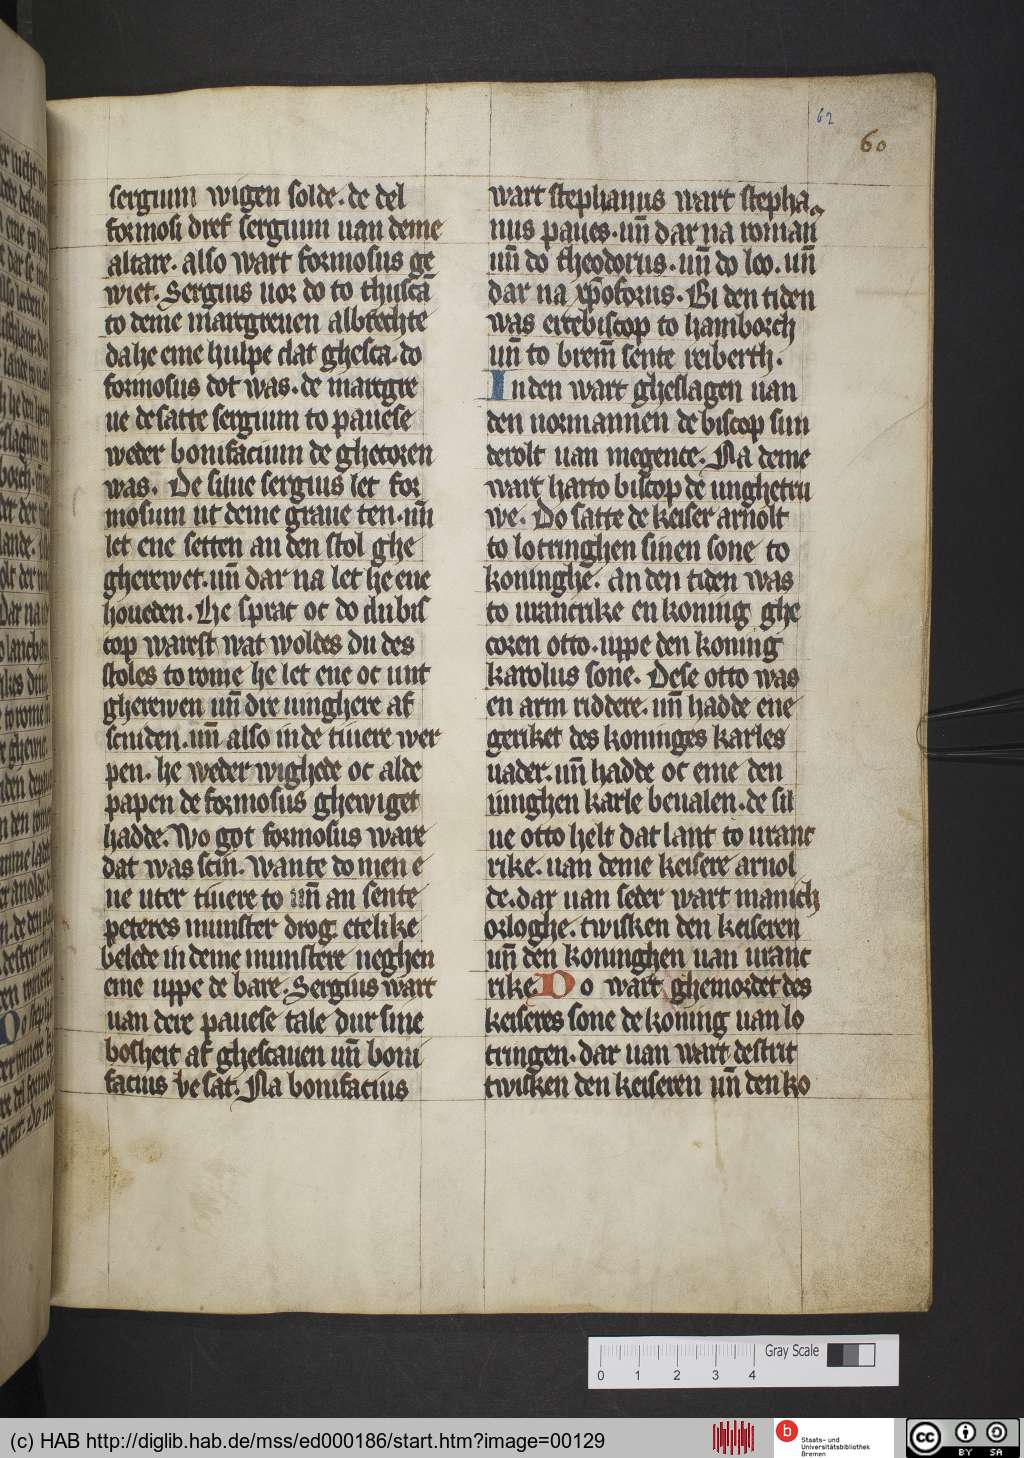 62
60
sergium wigen solde. de del
formosi dref sergium uan deme
altare. also wart formosus ge
wiet. Sergius uor do to thuscā
to deme marcgreuen albrechte
dahe eme hulpe dat ghesca. do
formosus dot was. de marcgre
ue desatte sergium to pauese
weder bonifacium de ghecoren
was. De silue sergius let for
mosum ut deme graue ten. uñ
let ene setten an den stol ghe
gherewet. uñ dar na let he ene
houeden. He sprac oc do du bis
cop warest wat woldes du des
stoles to rome he let ene oc unt
gherewen uñ dre uinghere af
sciuden. uñ also in de tiuere wer
pen. he weder wighede oc alde
papen de formosus ghewiget
hadde. Wo got formosus ware
dat was scin. Wante do men e
ne uter tiuere to uñ an sente
peteres munster drog. etelike
belede in deme munstere neghen
eme uppe de bare. Sergius wart
uan dere pauese tale dur sine
bosheit af ghescauen uñ boni
facius besat. Na bonifacius
wart stephanus wart stepha
nus paues. uñ dar na roman9
uñ do theodorus. uñ do leo. uñ
dar na xp̄oforus. Bi den tiden
was ertebiscop to hamborch
uñ to brem̄ sente reiberth.
In den wart gheslagen uan
den normannen de biscop sun
derolt uan megence. Na deme
wart hatto biscop de unghetru
we. Do satte de keiser arnolt
to lotringhen sinen sone to
koninghe. an den tiden was
to urancrike en koning ghe
coren otto. uppe den koning
karolus sone. Dese otto was
en arm riddere. uñ hadde ene
geriket des koninges karles
uader. uñ hadde oc eme den
iunghen karle beualen. de sil
ue otto helt dat lant to uranc
rike. uan deme keisere arnol
de. dar uan seder wart manich
orloghe. twisken den keiseren
uñ den koninghen uan uranc
rike. Do wart ghemordet des
keiseres sone de koning uan lo
tringen. dar uan wart destrit
twisken den keiseren uñ den ko
Gray Scale
0 1 2 3 4
(c) HAB http://diglib.hab.de/mss/ed000186/start.htm?image=00129
b
Staats- und
Universitätsbibliothek
Bremen
cc
BY SA